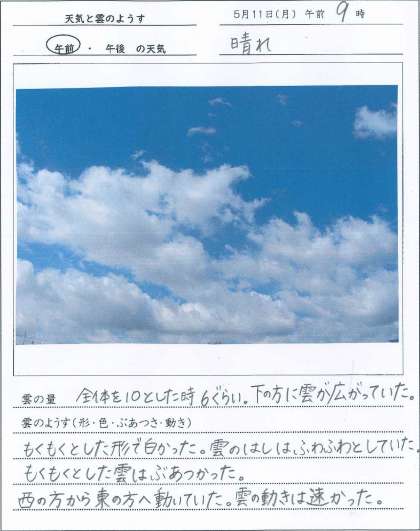 天気と雲のようす
5月11日(月) 午前 9 時
午前 ・ 午後 の天気
晴れ
雲の量 全体を10とした時6ぐらい。下の方に雲が広がっていた。
雲のようす(形・色・ぶあつさ・動き)
もくもくとした形で白かった。雲のはしは、ふわふわとしていた。
もくもくとした雲はぶあつかった。
西の方から東の方へ動いていた。雲の動きは速かった。